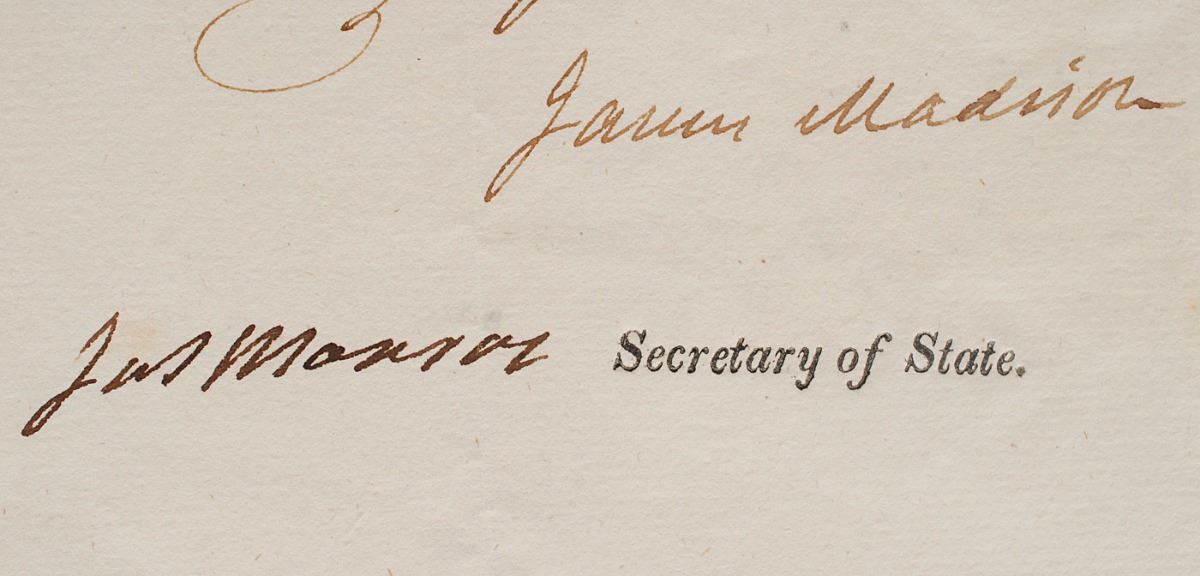 James Madison
Jas Monroe Secretary of State.